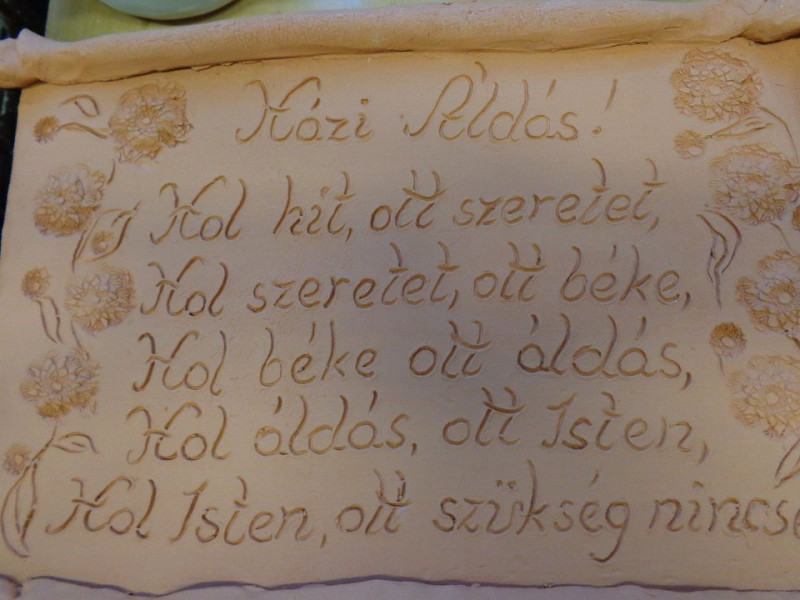 Házi Áldás!
Hol hit, ott szeretet,
Hol szeretet, ott béke,
Hol béke ott áldás,
Hol áldás, ott Isten,
Hol Isten, ott szükség nincse